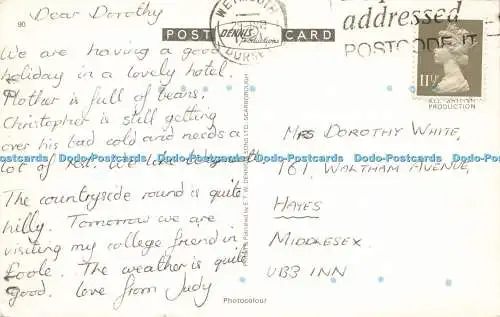 90
Dear Dorothy
We are having a good
holiday in a lovely hotel.
Mother is full of beans.
Christopher is still getting
over his bad cold and needs a
lot of rest. We like Weymouth
The countryside round is quite
hilly. Tomorrow we are
visiting my college friend in
Poole. The weather is quite
good. love from Judy
POST CARD
DENNIS
Productions
WEYMOUTH
DORSET
addressed
POSTCODE IT
11½P
ALL BRITISH
PRODUCTION
MRS DOROTHY WHITE,
167, WALTHAM AVENUE,
HAYES
MIDDLESEX.
UB3 1NN
Published by E.T.W. DENNIS & SONS LTD. SCARBOROUGH
Photocolour
Dodo-Postcards Dodo-Postcards Dodo-Postcards Dodo-Postcards Dodo-Postcards Dodo-Postcards